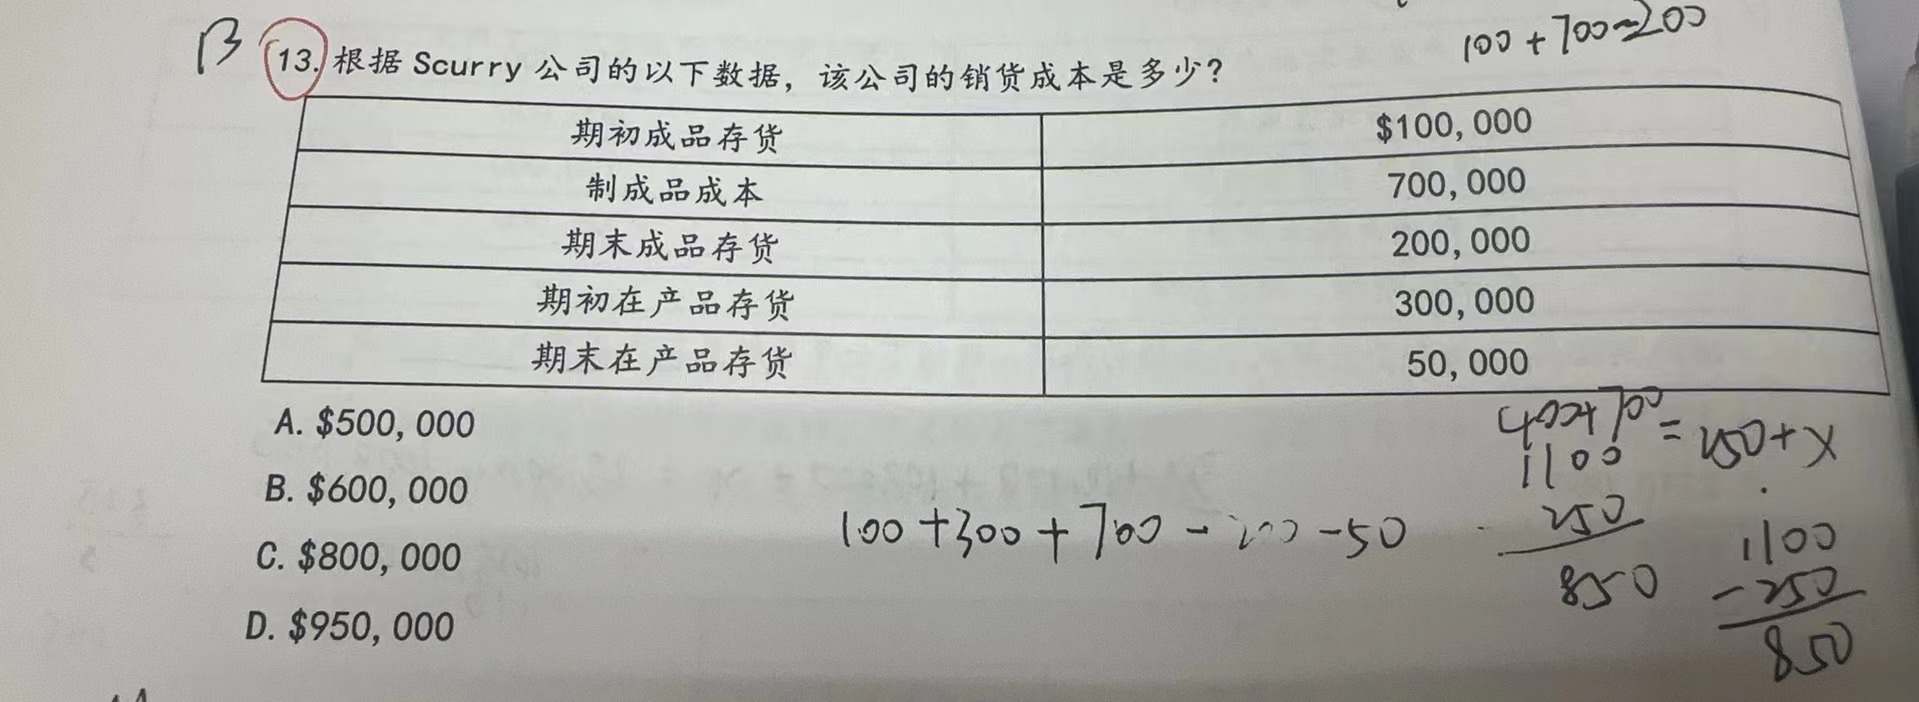 100 + 700 - 200
B 13. 根据 Scurry 公司的以下数据，该公司的销货成本是多少？
期初成品存货 $100,000
制成品成本 700,000
期末成品存货 200,000
期初在产品存货 300,000
期末在产品存货 50,000
A. $500,000
B. $600,000
C. $800,000
D. $950,000
400+700 = 250+X
1100
250
850
100 + 300 + 700 - 200 - 50
1100
- 250
850